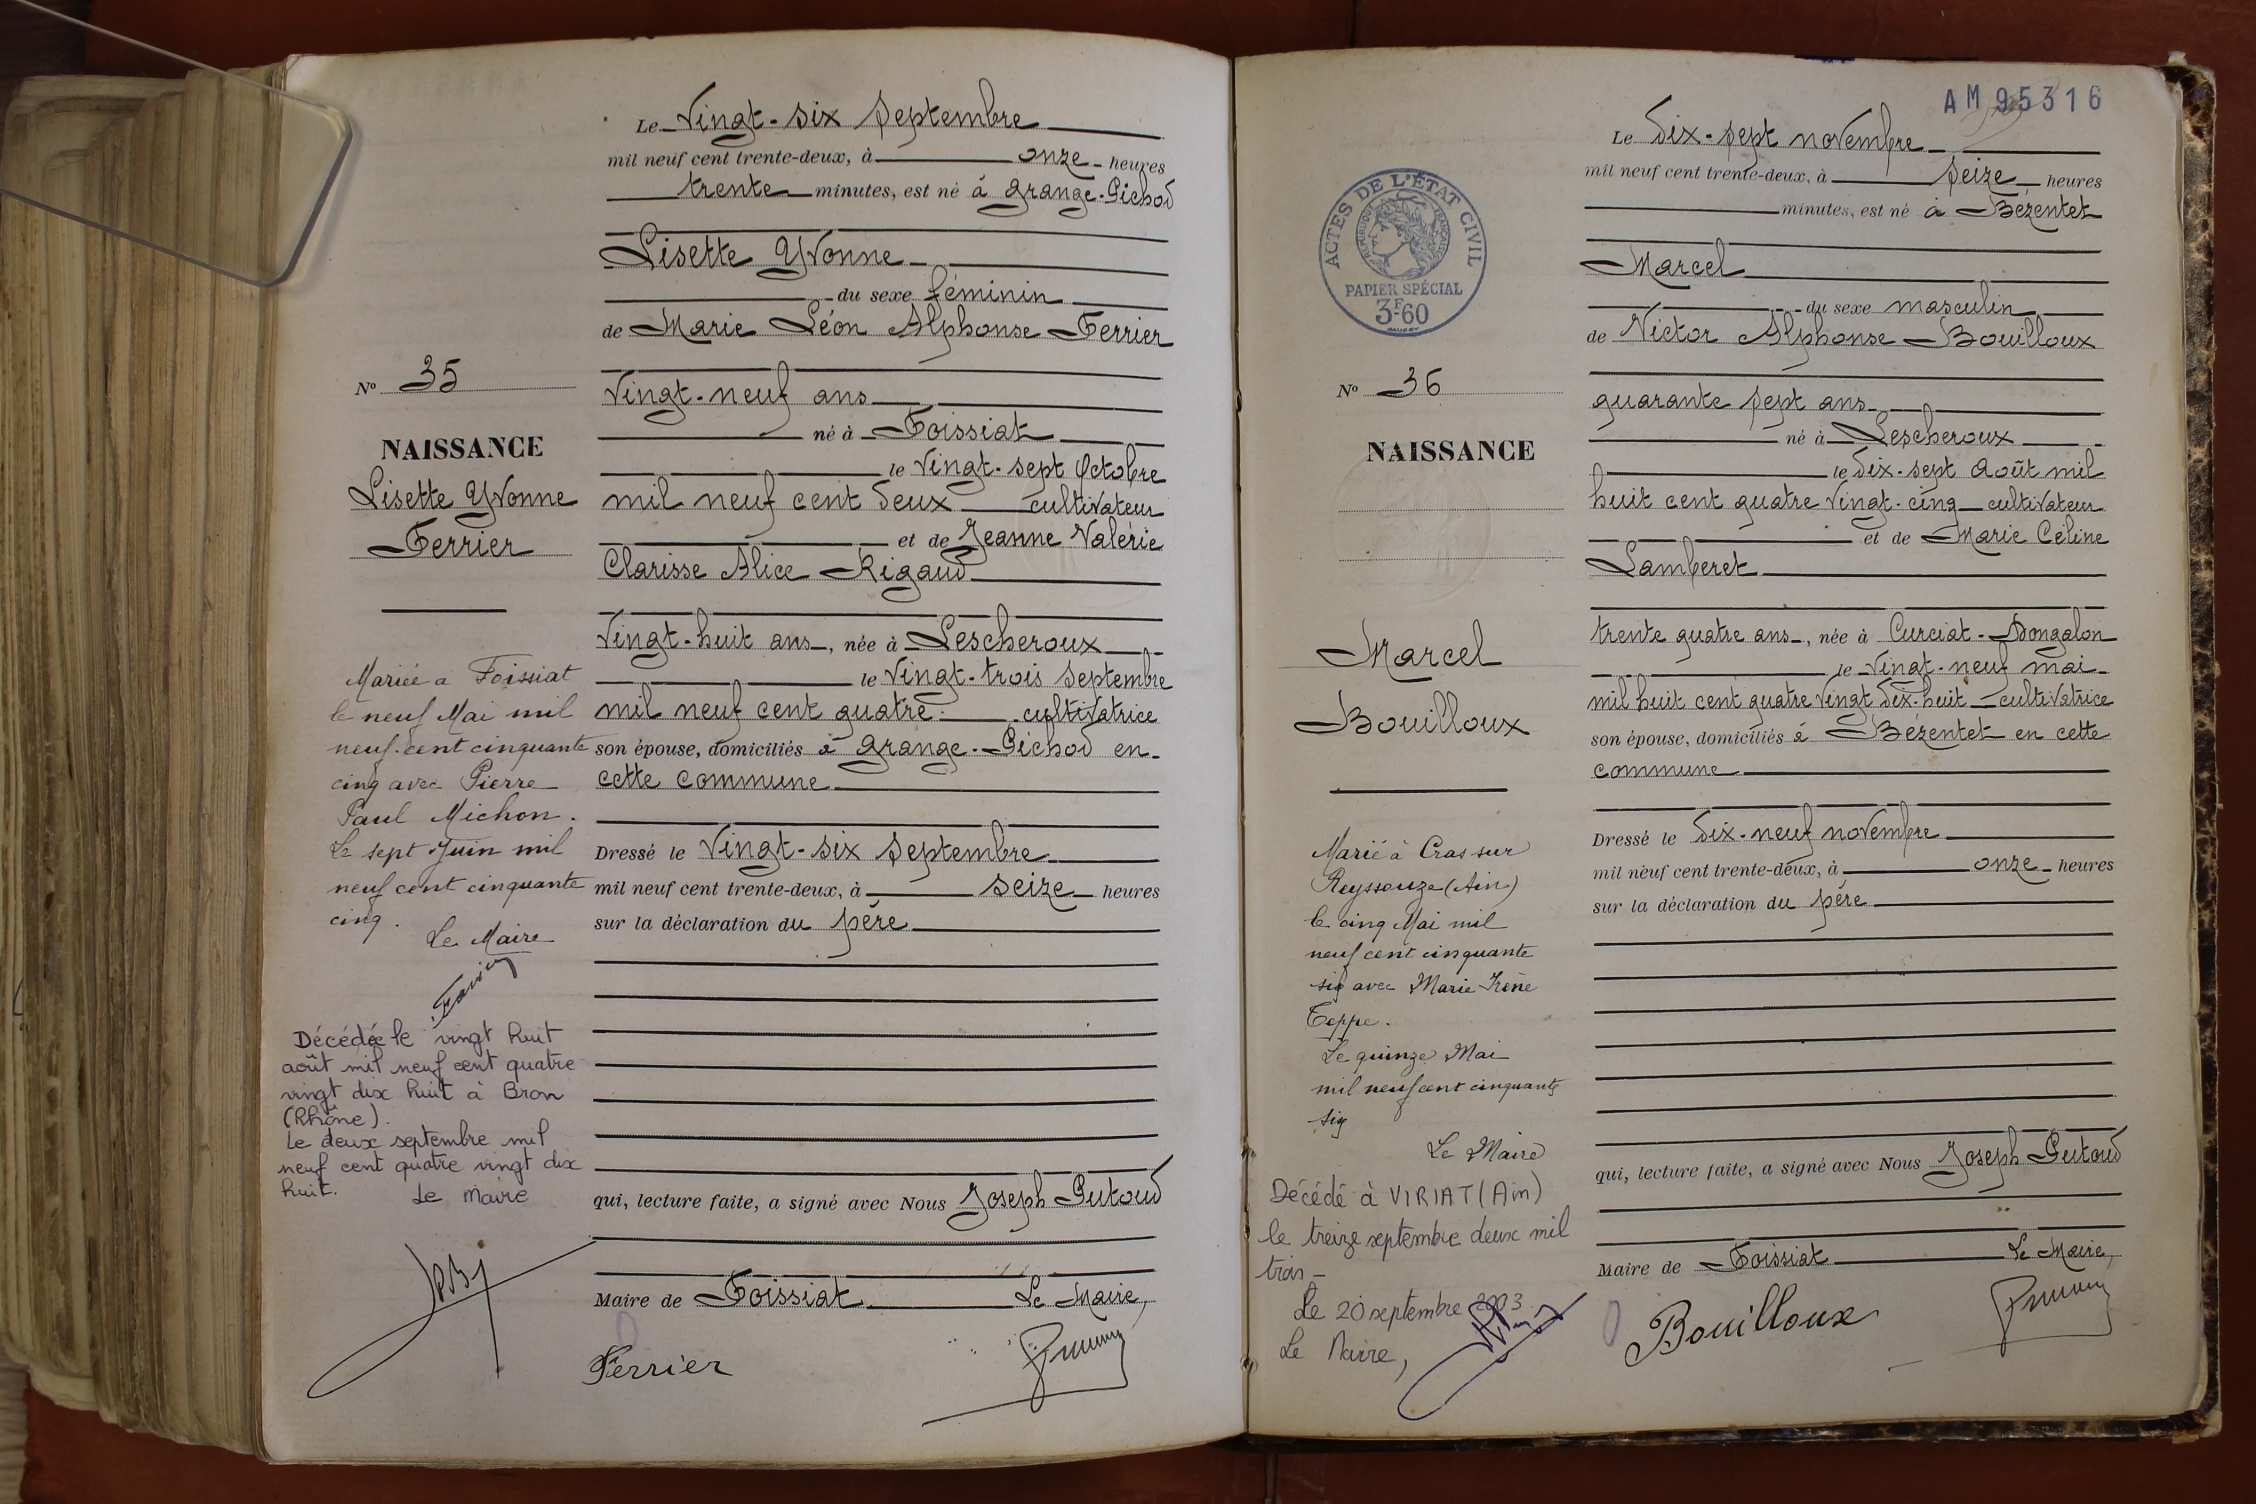 Le Vingt-six septembre
mil neuf cent trente-deux, à onze heures
trente minutes, est né à Grange-Pichod
Lisette Yvonne
du sexe féminin
de Marie Léon Alphonse Ferrier
Vingt-neuf ans
né à Foissiat
le Vingt-sept Octobre
mil neuf cent deux cultivateur
et de Jeanne Valérie
Clarisse Alice Rigaud
Vingt-huit ans, née à Lescheroux
le Vingt-trois septembre
mil neuf cent quatre cultivatrice
son épouse, domiciliés à Grange-Pichod en
cette commune
Dressé le Vingt-six septembre
mil neuf cent trente-deux, à seize heures
sur la déclaration du père
qui, lecture faite, a signé avec Nous Joseph Putoud
Maire de Foissiat Le Maire,
Ferrier
No 35
NAISSANCE
Lisette Yvonne
Ferrier
Mariée a Foissiat
le neuf Mai mil
neuf cent cinquante
cinq avec Pierre
Paul Michon.
Le sept Juin mil
neuf cent cinquante
cinq.
Le Maire
Décédée le vingt huit
août mil neuf cent quatre
vingt dix huit à Bron
(Rhône).
Le deux septembre mil
neuf cent quatre vingt dix
huit. Le Maire
AM 95316
Le Dix-sept novembre
mil neuf cent trente-deux, à seize heures
minutes, est né à Bézentet
Marcel
du sexe masculin
de Victor Alphonse Bouilloux
quarante sept ans
né à Lescheroux
le Dix-sept Août mil
huit cent quatre vingt-cinq cultivateur
et de Marie Céline
Lamberet
trente quatre ans, née à Curciat-Dongalon
le Vingt-neuf mai
mil huit cent quatre vingt dix-huit cultivatrice
son épouse, domiciliés à Bézentet en cette
commune
Dressé le Dix-neuf novembre
mil neuf cent trente-deux, à onze heures
sur la déclaration du père
qui, lecture faite, a signé avec Nous Joseph Putoud
Maire de Foissiat Le Maire,
Bouilloux
ACTES DE L'ÉTAT CIVIL
RÉPUBLIQUE FRANÇAISE
PAPIER SPÉCIAL
3F60
No 36
NAISSANCE
Marcel
Bouilloux
Marié à Cras sur
Reyssouze (Ain)
le cinq Mai mil
neuf cent cinquante
six avec Marie Irène
Teppe.
Le quinze Mai
mil neuf cent cinquante
six
Le Maire
Décédé à VIRIAT (Ain)
le treize septembre deux mil
trois -
Le 20 septembre 2003
Le Maire,